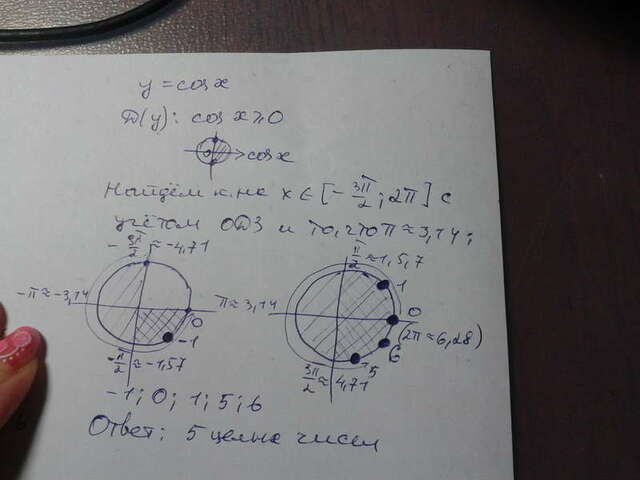 y = cos x
D(y): cos x ⩾ 0
0 cos x
Найдём к. на x ∈ [-3π/2; 2π] с
учётом ОДЗ и то, что π ≈ 3,14;
-3π/2 ≈ -4,71
-π ≈ -3,14
0
-1
-π/2 ≈ -1,57
π/2 ≈ 1,5,7
1
π ≈ 3,14
0
(2π ≈ 6,28)
6
5
3π/2 ≈ 4,71
-1; 0; 1; 5; 6
Ответ: 5 целых чисел